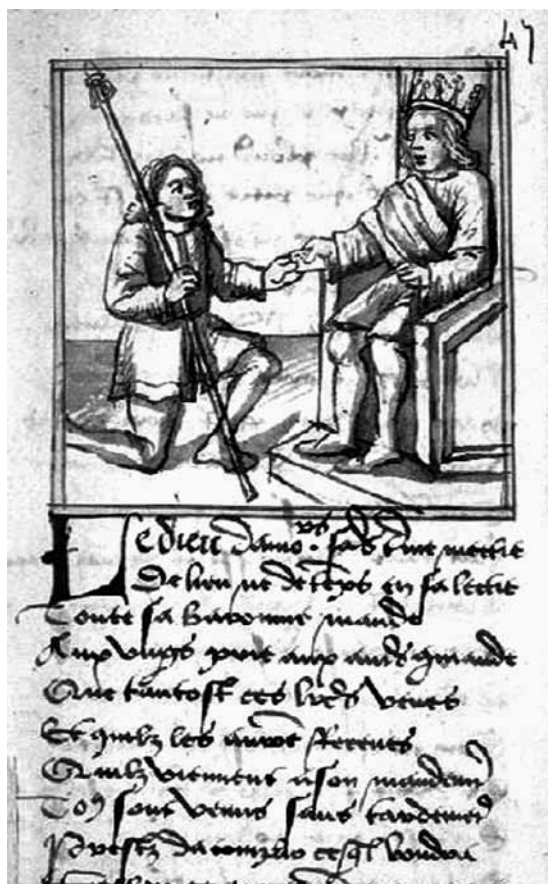 47
Le dieu damors sas tme mectre
De lieu ne de teps en sa lectre
Toute sa baronnie mande
Aux ungs prie aux auts 9mande
Que tantost ces lres veues
Et quilz les auront receues
Quilz viennent a son mandemt
To9 sont venus sans tardemet
Prestz dacomplir ce ql vouldra